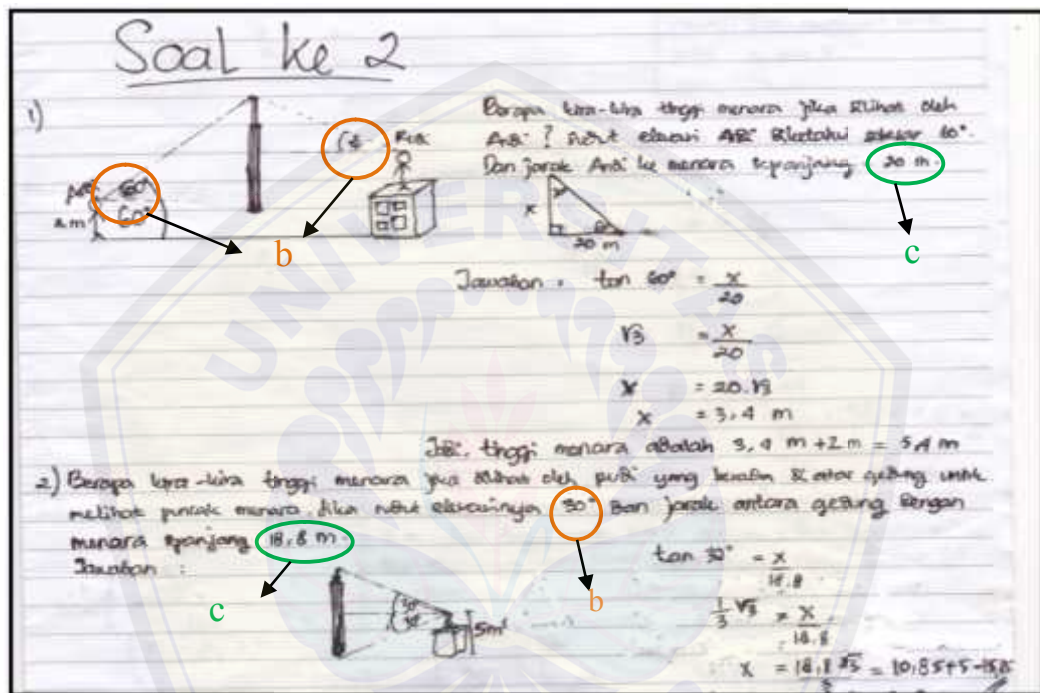 Soal ke 2
1)
Berapa kira-kira tinggi menara jika dilihat oleh
Andi? sudut elevasi Andi diketahui sebesar 60°.
Dan jarak Andi ke menara sepanjang 20 m.
Andi 60°
60°
2 m
Rudi
b
c
x
20 m
Jawaban : tan 60° = x/20
√3 = x/20
x = 20.√3
x = 3,4 m
Jadi, tinggi menara adalah 3,4 m + 2 m = 5,4 m
2) Berapa kira-kira tinggi menara jika dilihat oleh yang berada di atas gedung untuk
melihat puncak menara. Jika sudut elevasinya 30° dan jarak antara gedung dengan
menara sepanjang 18,8 m.
Jawaban :
c
b
30°
30°
5m
tan 30° = x/18.8
1/3 √3 = x/18.8
x = 18,8 √3/3 = 10,85+5
UNIVERSITAS